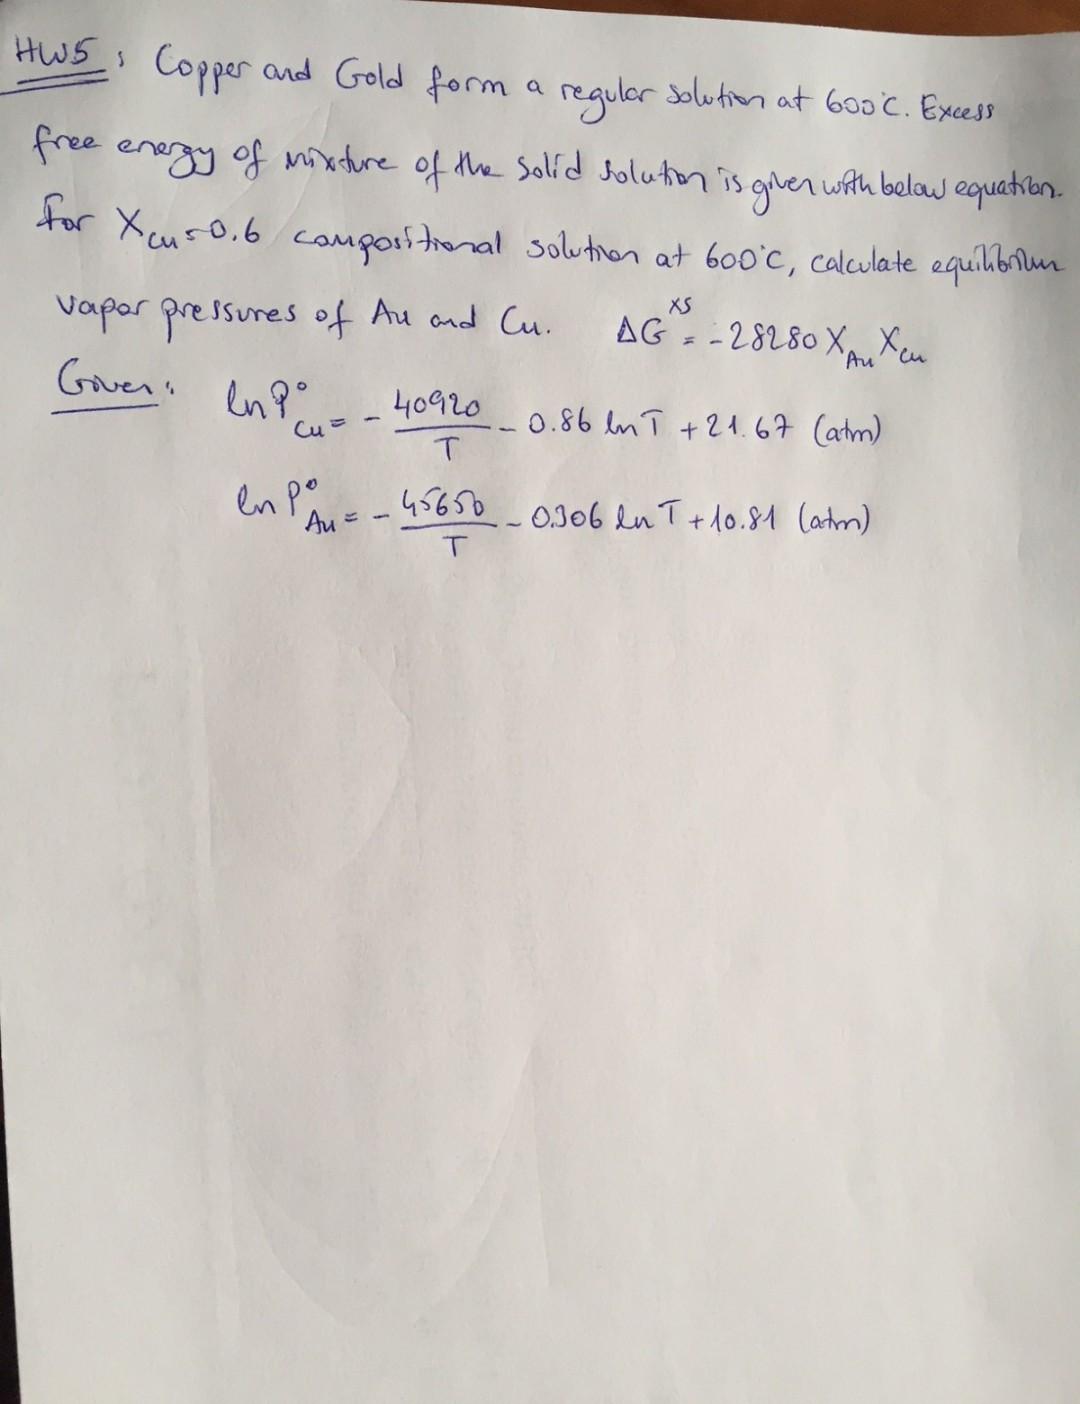 HW5: Copper and Gold form a regular solution at 600°C. Excess
free energy of mixture of the solid solution is given with below equation.
For X_Cu = 0.6 compositional solution at 600°C, calculate equilibrium
vapor pressures of Au and Cu. ΔG^XS = -28280 X_Au X_Cu
Given: ln P°_Cu = - 40920/T - 0.86 ln T + 21.67 (atm)
ln P°_Au = - 45650/T - 0.306 ln T + 10.81 (atm)